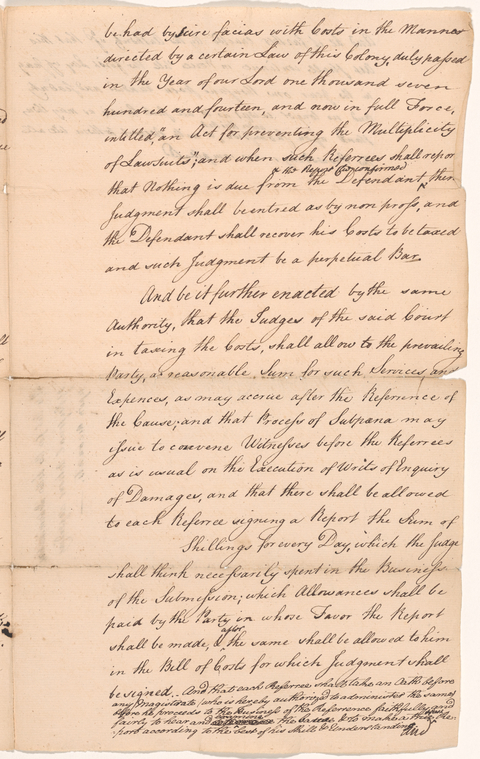 be had by scire facias with Costs in the Manner
directed by a certain Law of this Colony, duly passed
in the Year of our Lord one thousand seven
hundred and fourteen, and now in full Force,
intitled, "an Act for preventing the Multiplicity
of Law suits"; and when such Referrees shall repor
& the Report be confirmed
that Nothing is due from the Defendant ^ then
Judgment shall be entred as by non pross, and
the Defendant shall recover his Costs to be taxed
and such Judgment be a perpetual Bar.
And be it further enacted by the same
Authority, that the Judges of the said Court
in taxing the Costs, shall allow to the prevailing
Party, a reasonable Sum for such Services, and
Expences, as may accrue after the Reference of
the Cause; and that Process of Subpœna may
issue to convene Witnesses before the Referrees
as is usual on the Execution of Writs of Enquiry
of Damages, and that there shall be allowed
to each Referree signing a Report the Sum of
Shillings for every Day, which the Judge
shall think necessarily spent in the Business
of the Submission; which Allowances shall be
paid by the Party in whose Favor the Report
after
shall be made, & the same shall be allowed to him
in the Bill of Costs for which Judgment shall
be signed. And that each Referree shall take an Oath before
any Magistrate (who is hereby authorized to administer the same)
before he proceeds to the Business of the Referrence faithfully and
fairly to hear and examine the Cause & to make a true Re-
port according to the best of his Skill & Understanding
And